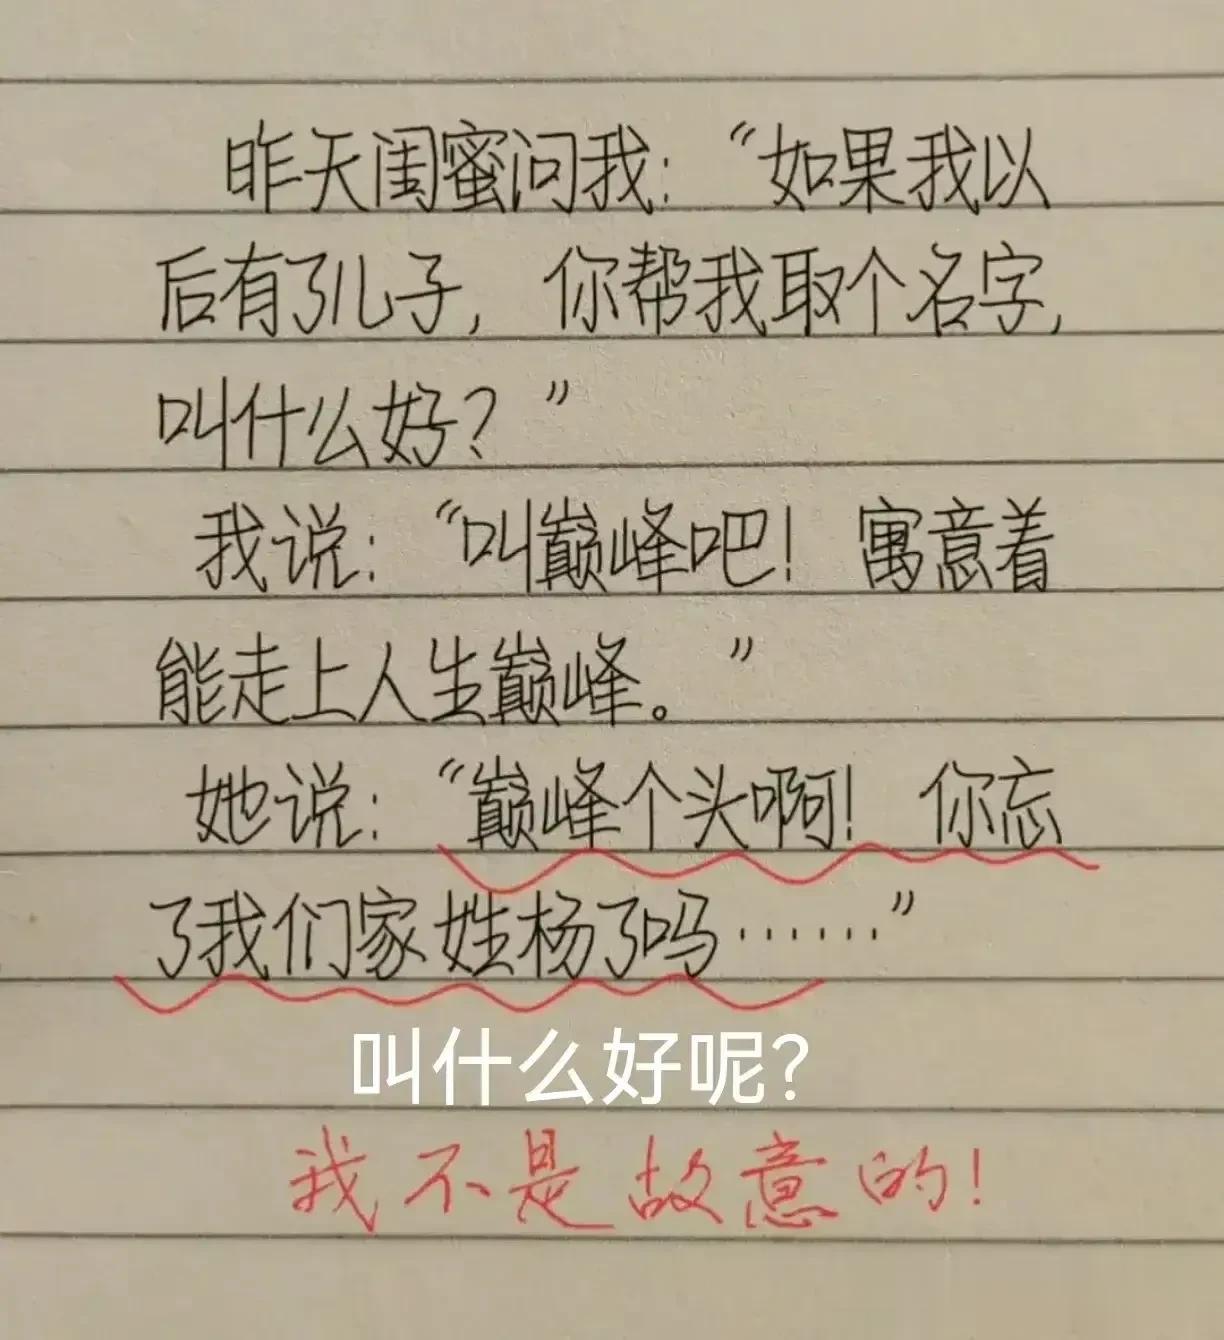 昨天闺蜜问我：“如果我以
后有了儿子，你帮我取个名字，
叫什么好？”
我说：“叫巅峰吧！寓意着
能走上人生巅峰。”
她说：“巅峰个头啊！你忘
了我们家姓杨了吗……”
叫什么好呢？
我不是故意的！